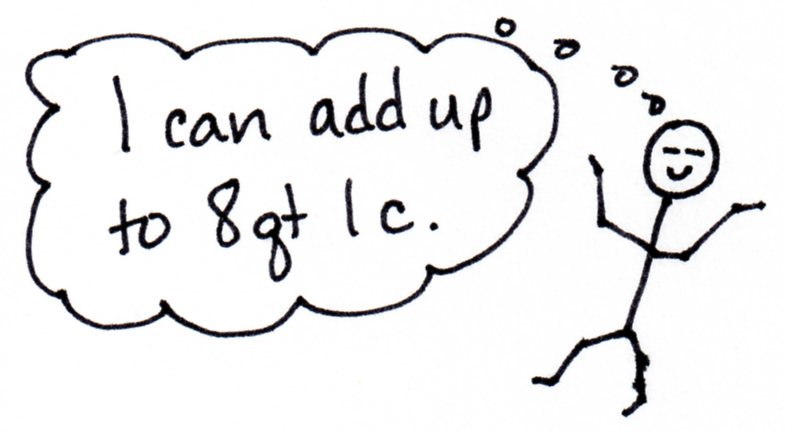 I can add up
to 8qt 1c.